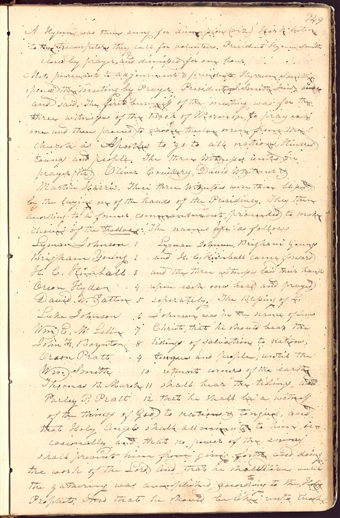 149
A Hymn was then sung,
to the they call for volunteers. President Hyrum Smith
close by prayer, and dismissed for one hour
Met pursuant to adjournment & president
opened the meeting by Prayer. President Smith
and said. The first business of the meeting was for the
three witnesses of the Book of Mormon to pray each
one and then proceed to choose twelve men from the
church as Apostles to go to all nations, kindred
toungs and people. The Three Witnesses united in
prayer (viz) Oliver Cowdery, David Whitmer &
Martin Harris. These three Witnesses were then blessed
by the laying on of the hands of the Presidency. They then
according to a former commandment, proceeded to make
choice of the twelve. The names are as follows
Lyman Johnson 1 Lyman Johnson, Brigham Young
Brigham Young 2 and H. C. Kimball came forward
H. C. Kimball 3 and the three witnesses laid their hands
Orson Hyde 4 upon each ones head and prayed
David W. Patten 5 seperately. The blessing of L.
Luke Johnson 6 Johnson was in the name of Jesus
Wm E. McLellin 7 Christ, that he should bear the
John F. Boynton 8 tidings of salvation to nations,
Orson Pratt 9 tongues and people, until the
Wm Smith 10 utmost corners of the earth
Thomas B. Marsh 11 shall hear the tidings, and
Parley P. Pratt 12 that he shall be a witness
of the things of God to nations & tongues, and
that Holy Angels shall administer to him oc-
casionally and that no power of the enemy
shall prevent him from going forth and doing
the work of the Lord. And, that he shall live until
the gathering was accomplished, according to the Holy
Prophets. And that he should be like unto